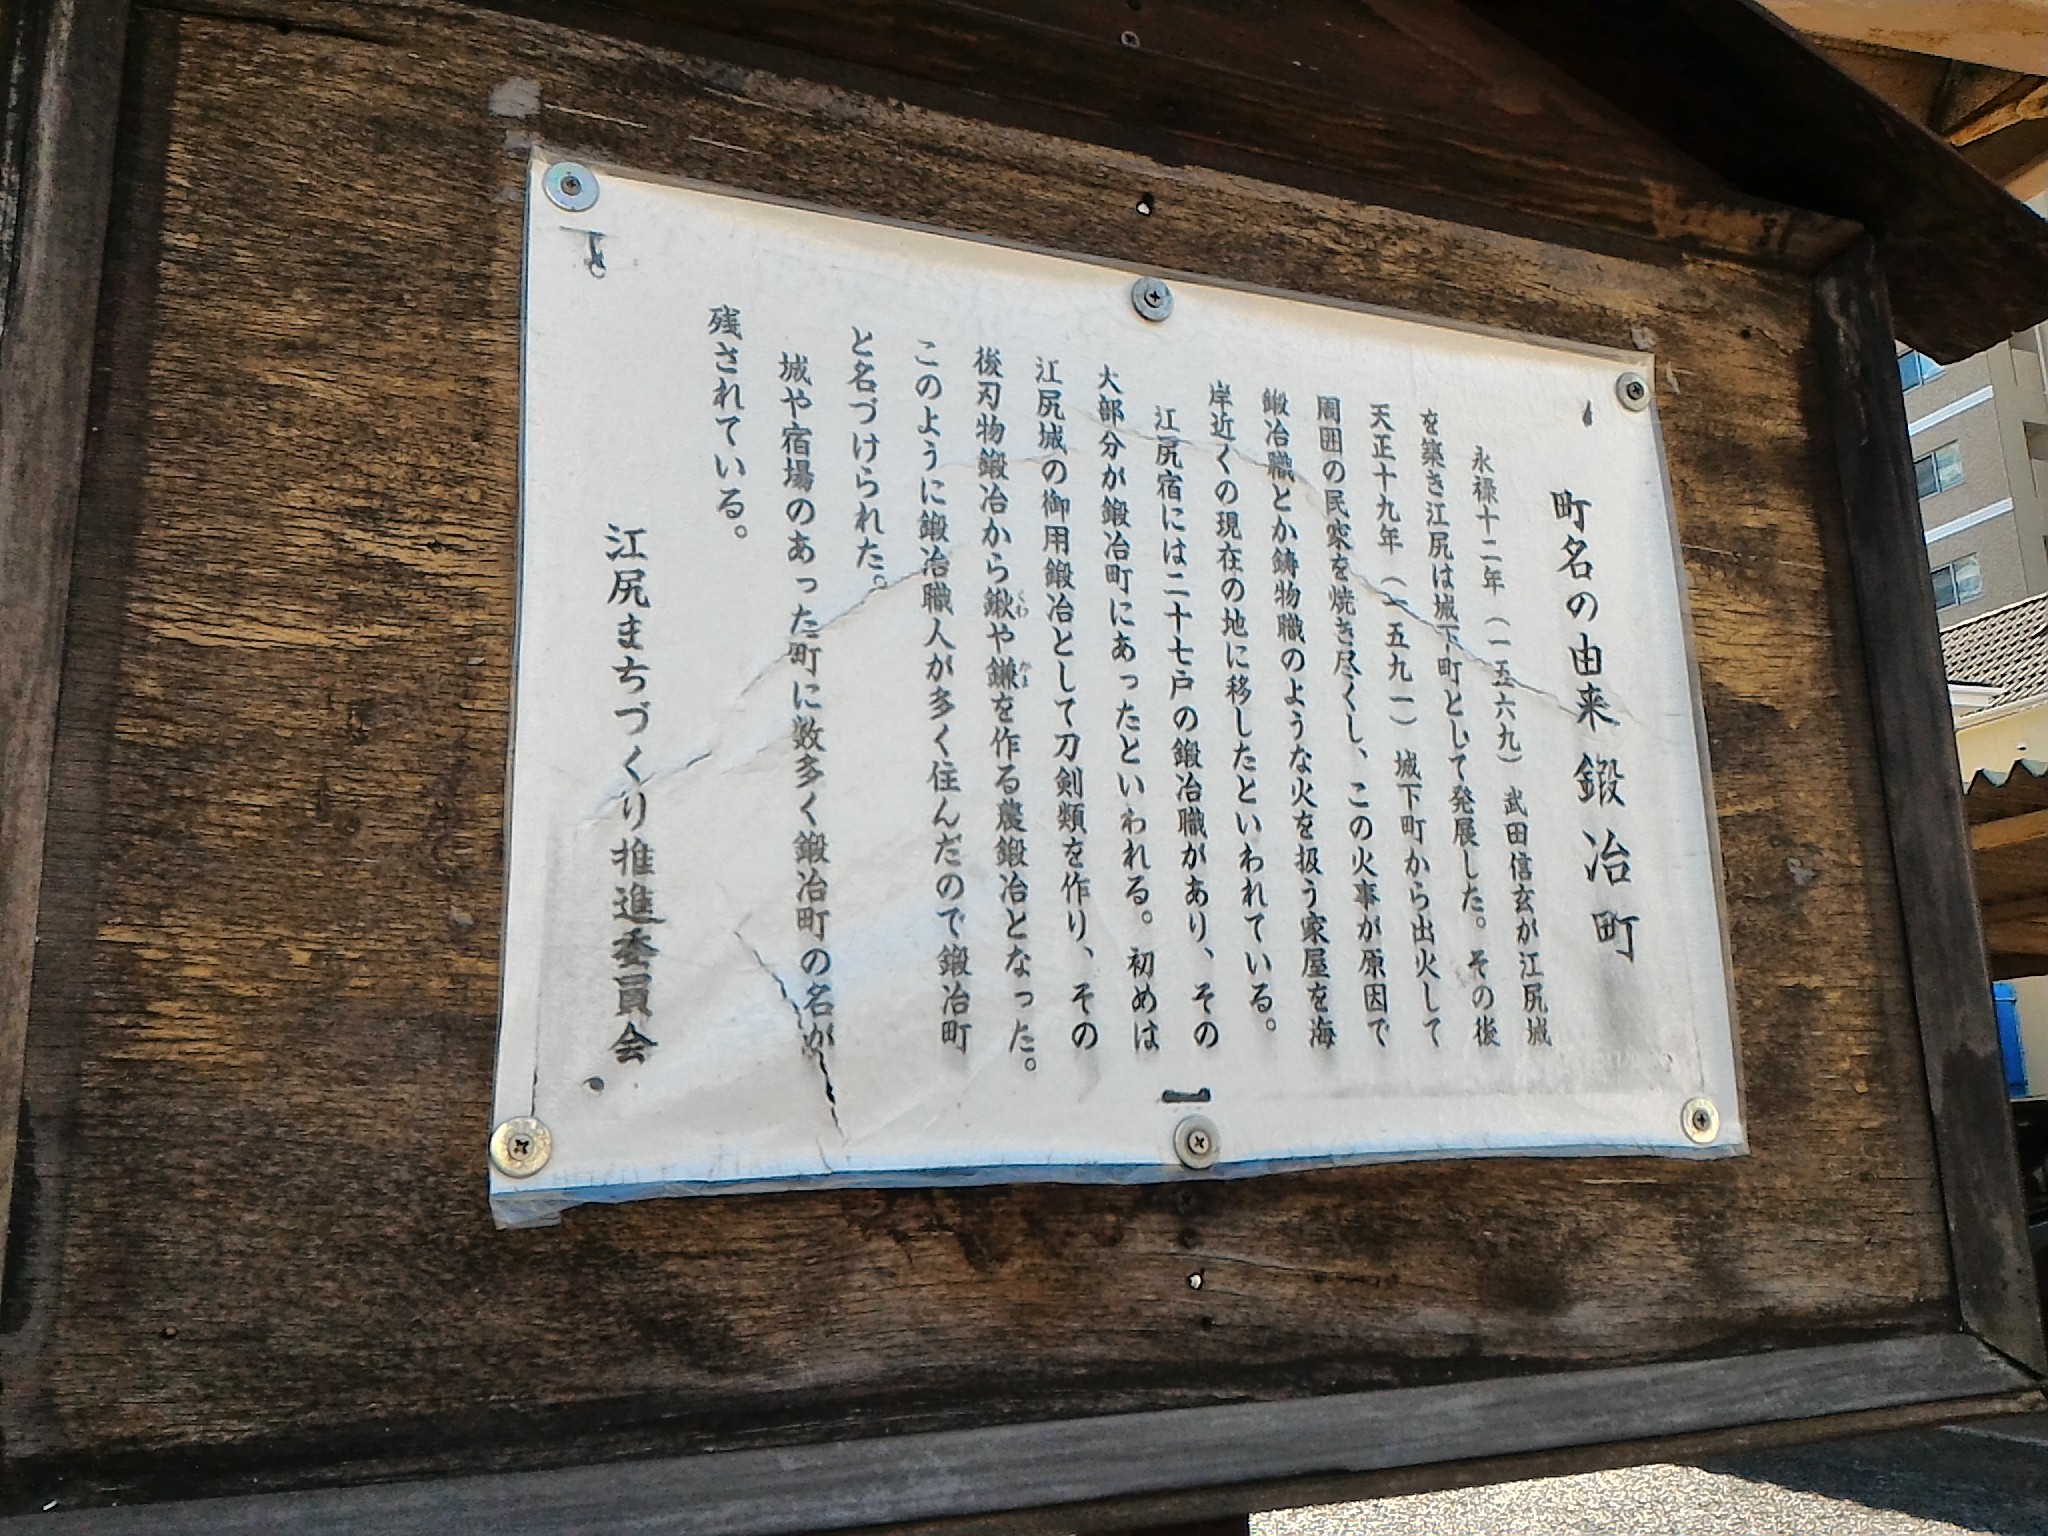 町名の由来 鍛冶町
永禄十二年（一五六九）武田信玄が江尻城
を築き江尻は城下町として発展した。その後
天正十九年（一五九一）城下町から出火して
周囲の民家を焼き尽くし、この火事が原因で
鍛冶職とか鋳物職のような火を扱う家屋を海
岸近くの現在の地に移したといわれている。
江尻宿には二十七戸の鍛冶職があり、その
大部分が鍛冶町にあったといわれる。初めは
江尻城の御用鍛冶として刀剣類を作り、その
後刃物鍛冶から鍬くわや鎌かまを作る農鍛冶となった。
このように鍛冶職人が多く住んだので鍛冶町
と名づけられた。
城や宿場のあった町に数多く鍛冶町の名が
残されている。
江尻まちづくり推進委員会